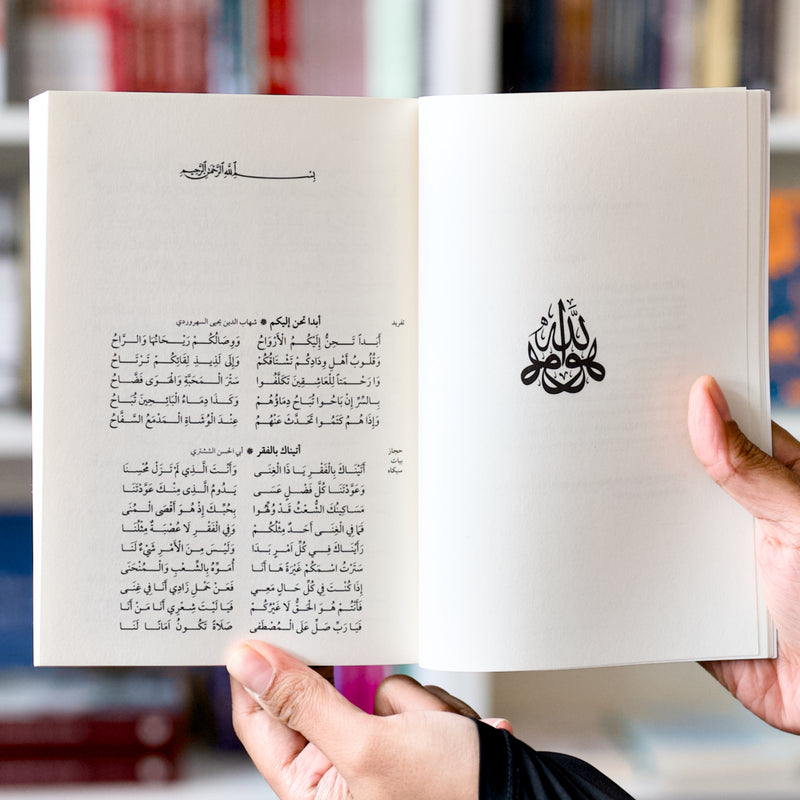 بِسْمِ اللَّهِ الرَّحْمَٰنِ الرَّحِيمِ
تفريد
أبدا تحن إليكم ❋ شهاب الدين يحيى السهروردي
أَبَداً تَحِنُّ إِلَيْكُمُ الْأَرْوَاحُ وَوِصَالُكُمْ رَيْحَانُهَا وَالرَّاحُ
وَقُلُوبُ أَهْلِ وِدَادِكُمْ تَشْتَاقُكُمْ وَإِلَى لَذِيذِ لِقَائِكُمْ تَرْتَاحُ
وَارَحْمَتَاً لِلْعَاشِقِينَ تَكَلَّفُوا سَتْرَ الْمَحَبَّةِ وَالْهَوَى فَضَّاحُ
بِالسِّرِّ إِنْ بَاحُوا تُبَاحُ دِمَاؤُهُمْ وَكَذَا دِمَاءُ الْبَائِحِينَ تُبَاحُ
وَإِذَا هُمُ كَتَمُوا تَحَدَّثَ عَنْهُمُ عِنْدَ الْوُشَاةِ الْمَدْمَعُ السَّفَّاحُ
حجاز
بيات
سيكاه
أتيناك بالفقر ❋ أبي الحسن الششتري
أَتَيْنَاكَ بِالْفَقْرِ يَا ذَا الْغِنَى وَأَنْتَ الَّذِي لَمْ تَزَلْ مُحْسِنَا
وَعَوَّدْتَنَا كُلَّ فَضْلٍ عَسَى يَدُومُ الَّذِى مِنْكَ عَوَّدْتَنَا
مَسَاكِينُكَ الشُّعْثُ قَدْ وُلِّهُوا بِحُبِّكَ إِذْ هُوَ أَقْصَى الْمُنَى
فَمَا فِي الْغِنَى أَحَدٌ مِثْلُكُمْ وَفِي الْفَقْرِ لَا عُصْبَةٌ مِثْلُنَا
رَأَيْنَاكَ فِي كُلِّ أَمْرٍ بَدَا وَلَيْسَ مِنَ الْأَمْرِ شَيْءٌ لَنَا
سَتَرْتَ اسْمَكُمْ غَيْرَةً هَا أَنَا أُمَوِّهُ بِالشِّعْبِ وَالْمُنْحَنَى
إِذَا كُنْتَ فِي كُلِّ حَالٍ مَعِي فَعَنْ حَمْلِ زَادِي أَنَا فِي غِنَى
فَأَنْتُمْ هُوَ الْحَقُّ لَا غَيْرُكُمْ فَيَا لَيْتَ شِعْرِي أَنَا مَنْ أَنَا
فَيَا رَبِّ صَلِّ عَلَى الْمُصْطَفَى صَلَاةً تَكُونُ أَمَانًا لَنَا
هو الله